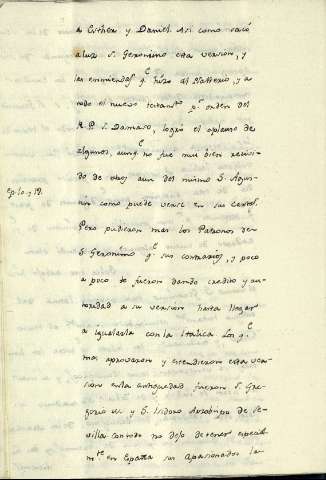 a Esther y Daniel. Asi como sacó
a luz S. Geronimo esta version, y
las enmiendas q.e hizo al Psalterio, y a
todo el nuevo testam.to p.r orden del
S. Damaso, logró el aplauso de
algunos, aunq.e no fue mui bien recivi-
do de otros aun del mismo S. Agus-
tin como puede verse en sus cartas.
Ep. 10. y 19.
Pero pudieron mas los Patronos de
S. Geronimo q.e sus contrarios, y poco
a poco le fueron dando credito y au-
toridad a su version hasta llegar
a igualarla con la Italica. Los q.e
mas aprovaron y estendieron esta ver-
sion en la antiguedad fueron S. Gre-
gorio M. y S. Isidoro Arzobispo de Se-
villa con todo no dejo de tener especial-
m.te en España sus apasionados la